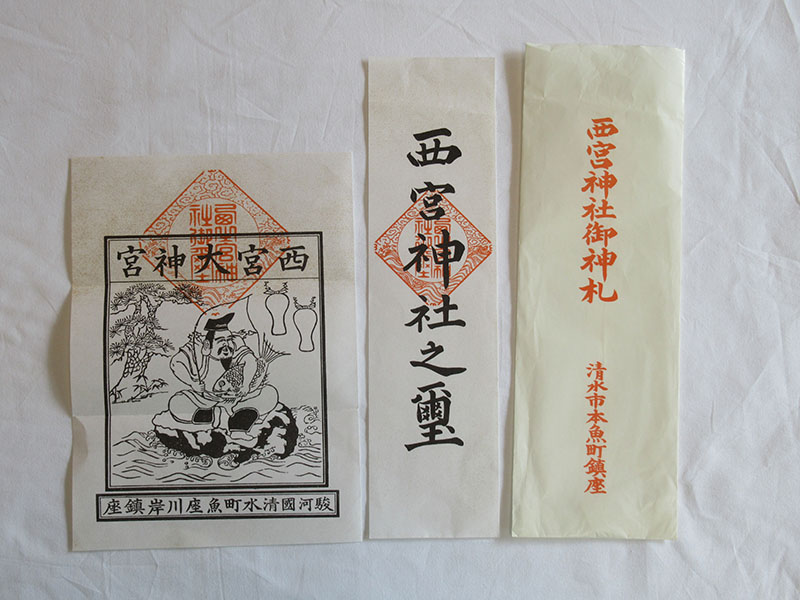 西宮大神宮
駿河國清水町魚座川岸鎮座
西宮神社之璽
西宮神社御神札
清水市本魚町鎮座